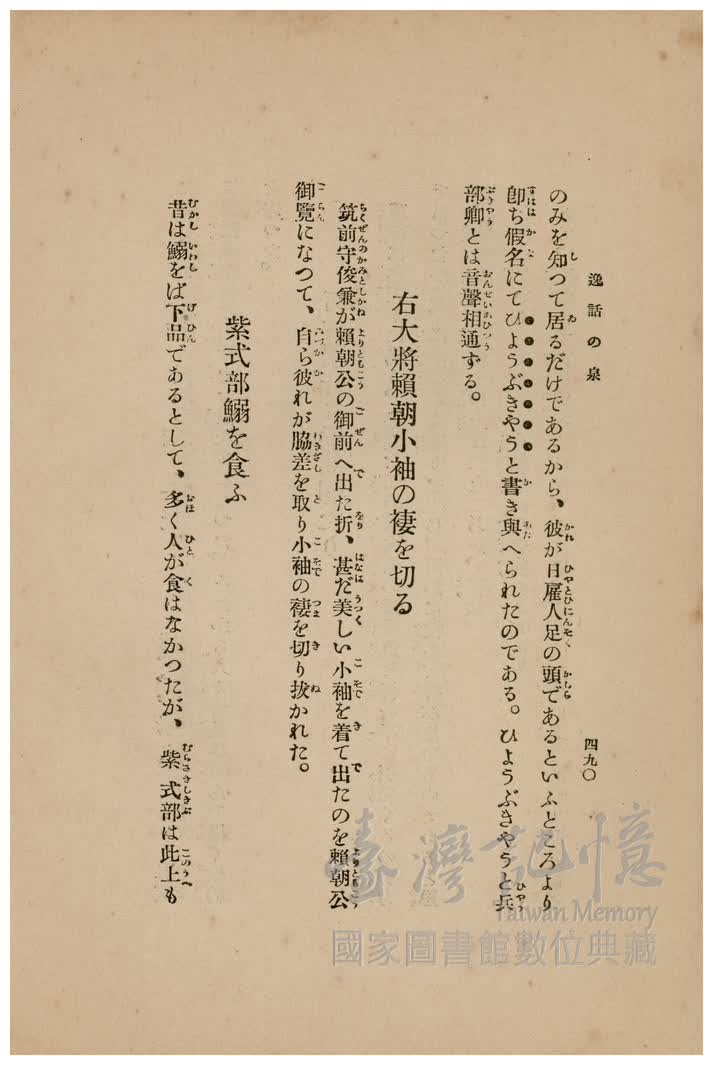 逸話の泉
四九〇
のみを知つて居るだけであるから、彼が日雇人足の頭であるといふところより
卽ち假名にてひょうぶきやうと書き與へられたのである。ひようぶきやうと兵
部卿とは音聲相通ずる。
右大將賴朝小袖の褄を切る
筑前守俊兼が賴朝公の御前へ出た折、甚だ美しい小袖を着て出たのを賴朝公
御覽になつて、自ら彼れが脇差を取り小袖の褄を切り拔かれた。
紫式部鰯を食ふ
昔は鰯をば下品であるとして、多く人が食はなかつたが、紫式部は此上も
臺灣記憶
Taiwan Memory
國家圖書館數位典藏